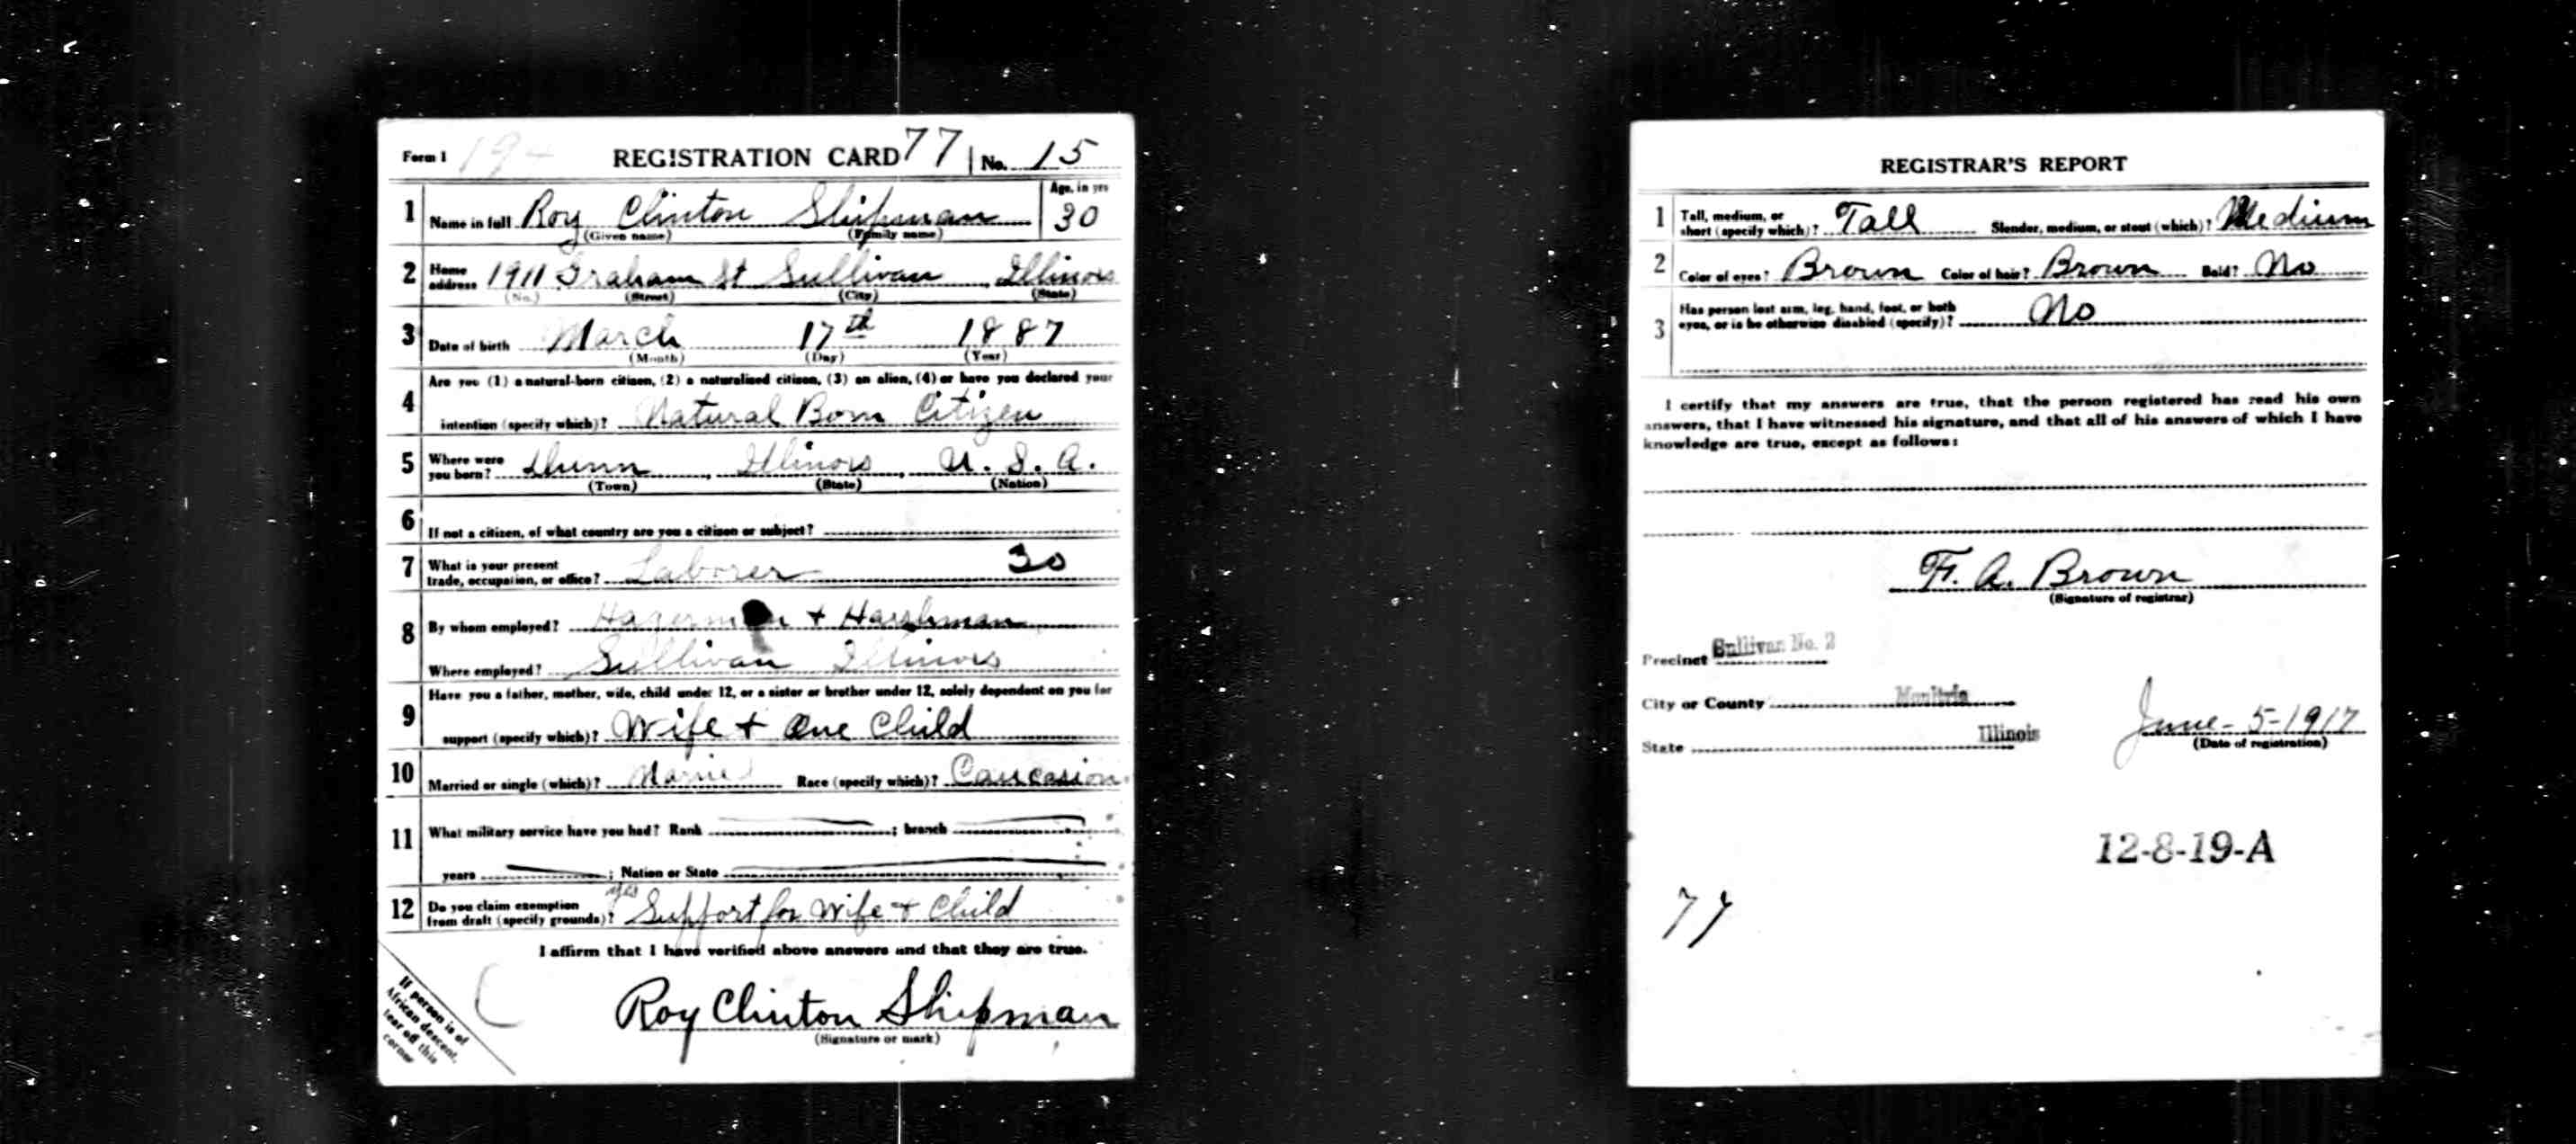 Form 1 194 REGISTRATION CARD 77 No. 15
1 Name in full Roy Clinton Shipman Age, in yrs 30
(Given name) (Family name)
2 Home address 1911 Graham St Sullivan, Illinois
(No.) (Street) (City) (State)
3 Date of birth March 17th 1887
(Month) (Day) (Year)
4 Are you (1) a natural-born citizen, (2) a naturalized citizen, (3) an alien, (4) or have you declared your
intention (specify which)? Natural Born Citizen
5 Where were you born? Dunn, Illinois, U. S. A.
(Town) (State) (Nation)
6 If not a citizen, of what country are you a citizen or subject?
7 What is your present trade, occupation, or office? Laborer 30
8 By whom employed? Hagerman + Harshman
Where employed? Sullivan Illinois
9 Have you a father, mother, wife, child under 12, or a sister or brother under 12, solely dependent on you for
support (specify which)? Wife + One Child
10 Married or single (which)? Married Race (specify which)? Caucasion
11 What military service have you had? Rank ; branch
years ; Nation or State
yes
12 Do you claim exemption from draft (specify grounds)? Support for Wife + Child
I affirm that I have verified above answers and that they are true.
Roy Clinton Shipman
(Signature or mark)
If person is of
African descent,
tear off this
corner
REGISTRAR'S REPORT
1 Tall, medium, or short (specify which)? Tall Slender, medium, or stout (which)? Medium
2 Color of eyes? Brown Color of hair? Brown Bald? No
3 Has person lost arm, leg, hand, foot, or both eyes, or is he otherwise disabled (specify)? No
I certify that my answers are true, that the person registered has read his own
answers, that I have witnessed his signature, and that all of his answers of which I have
knowledge are true, except as follows:
F. A. Brown
(Signature of registrar)
Precinct Sullivan No. 2
City or County Moultrie
State Illinois June-5-1917
(Date of registration)
12-8-19-A
77